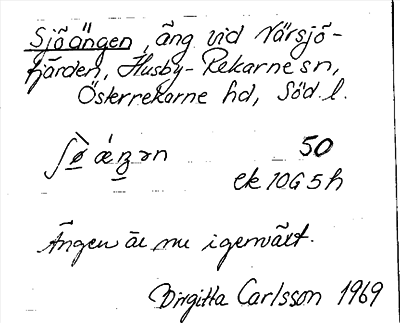 Sjöängen, äng vid Närsjö-
fjärden, Husby-Rekarne sn,
Österrekarne hd, Söd. l.
ʃø̀ ǽŋən 50
ek 10G 5h
Ängen är nu igenväxt.
Birgitta Carlsson 1969